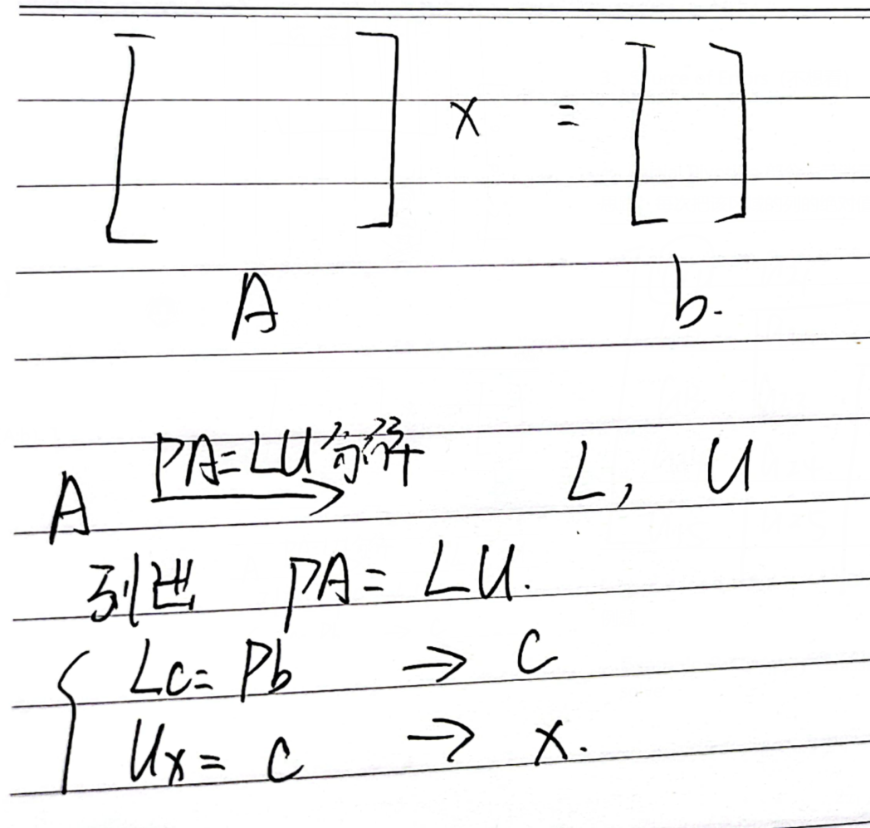 [ ] x = [ ]
A b.
A PA=LU分解 L, U
引进 PA = LU.
{ Lc = Pb → c
Ux = c → x.